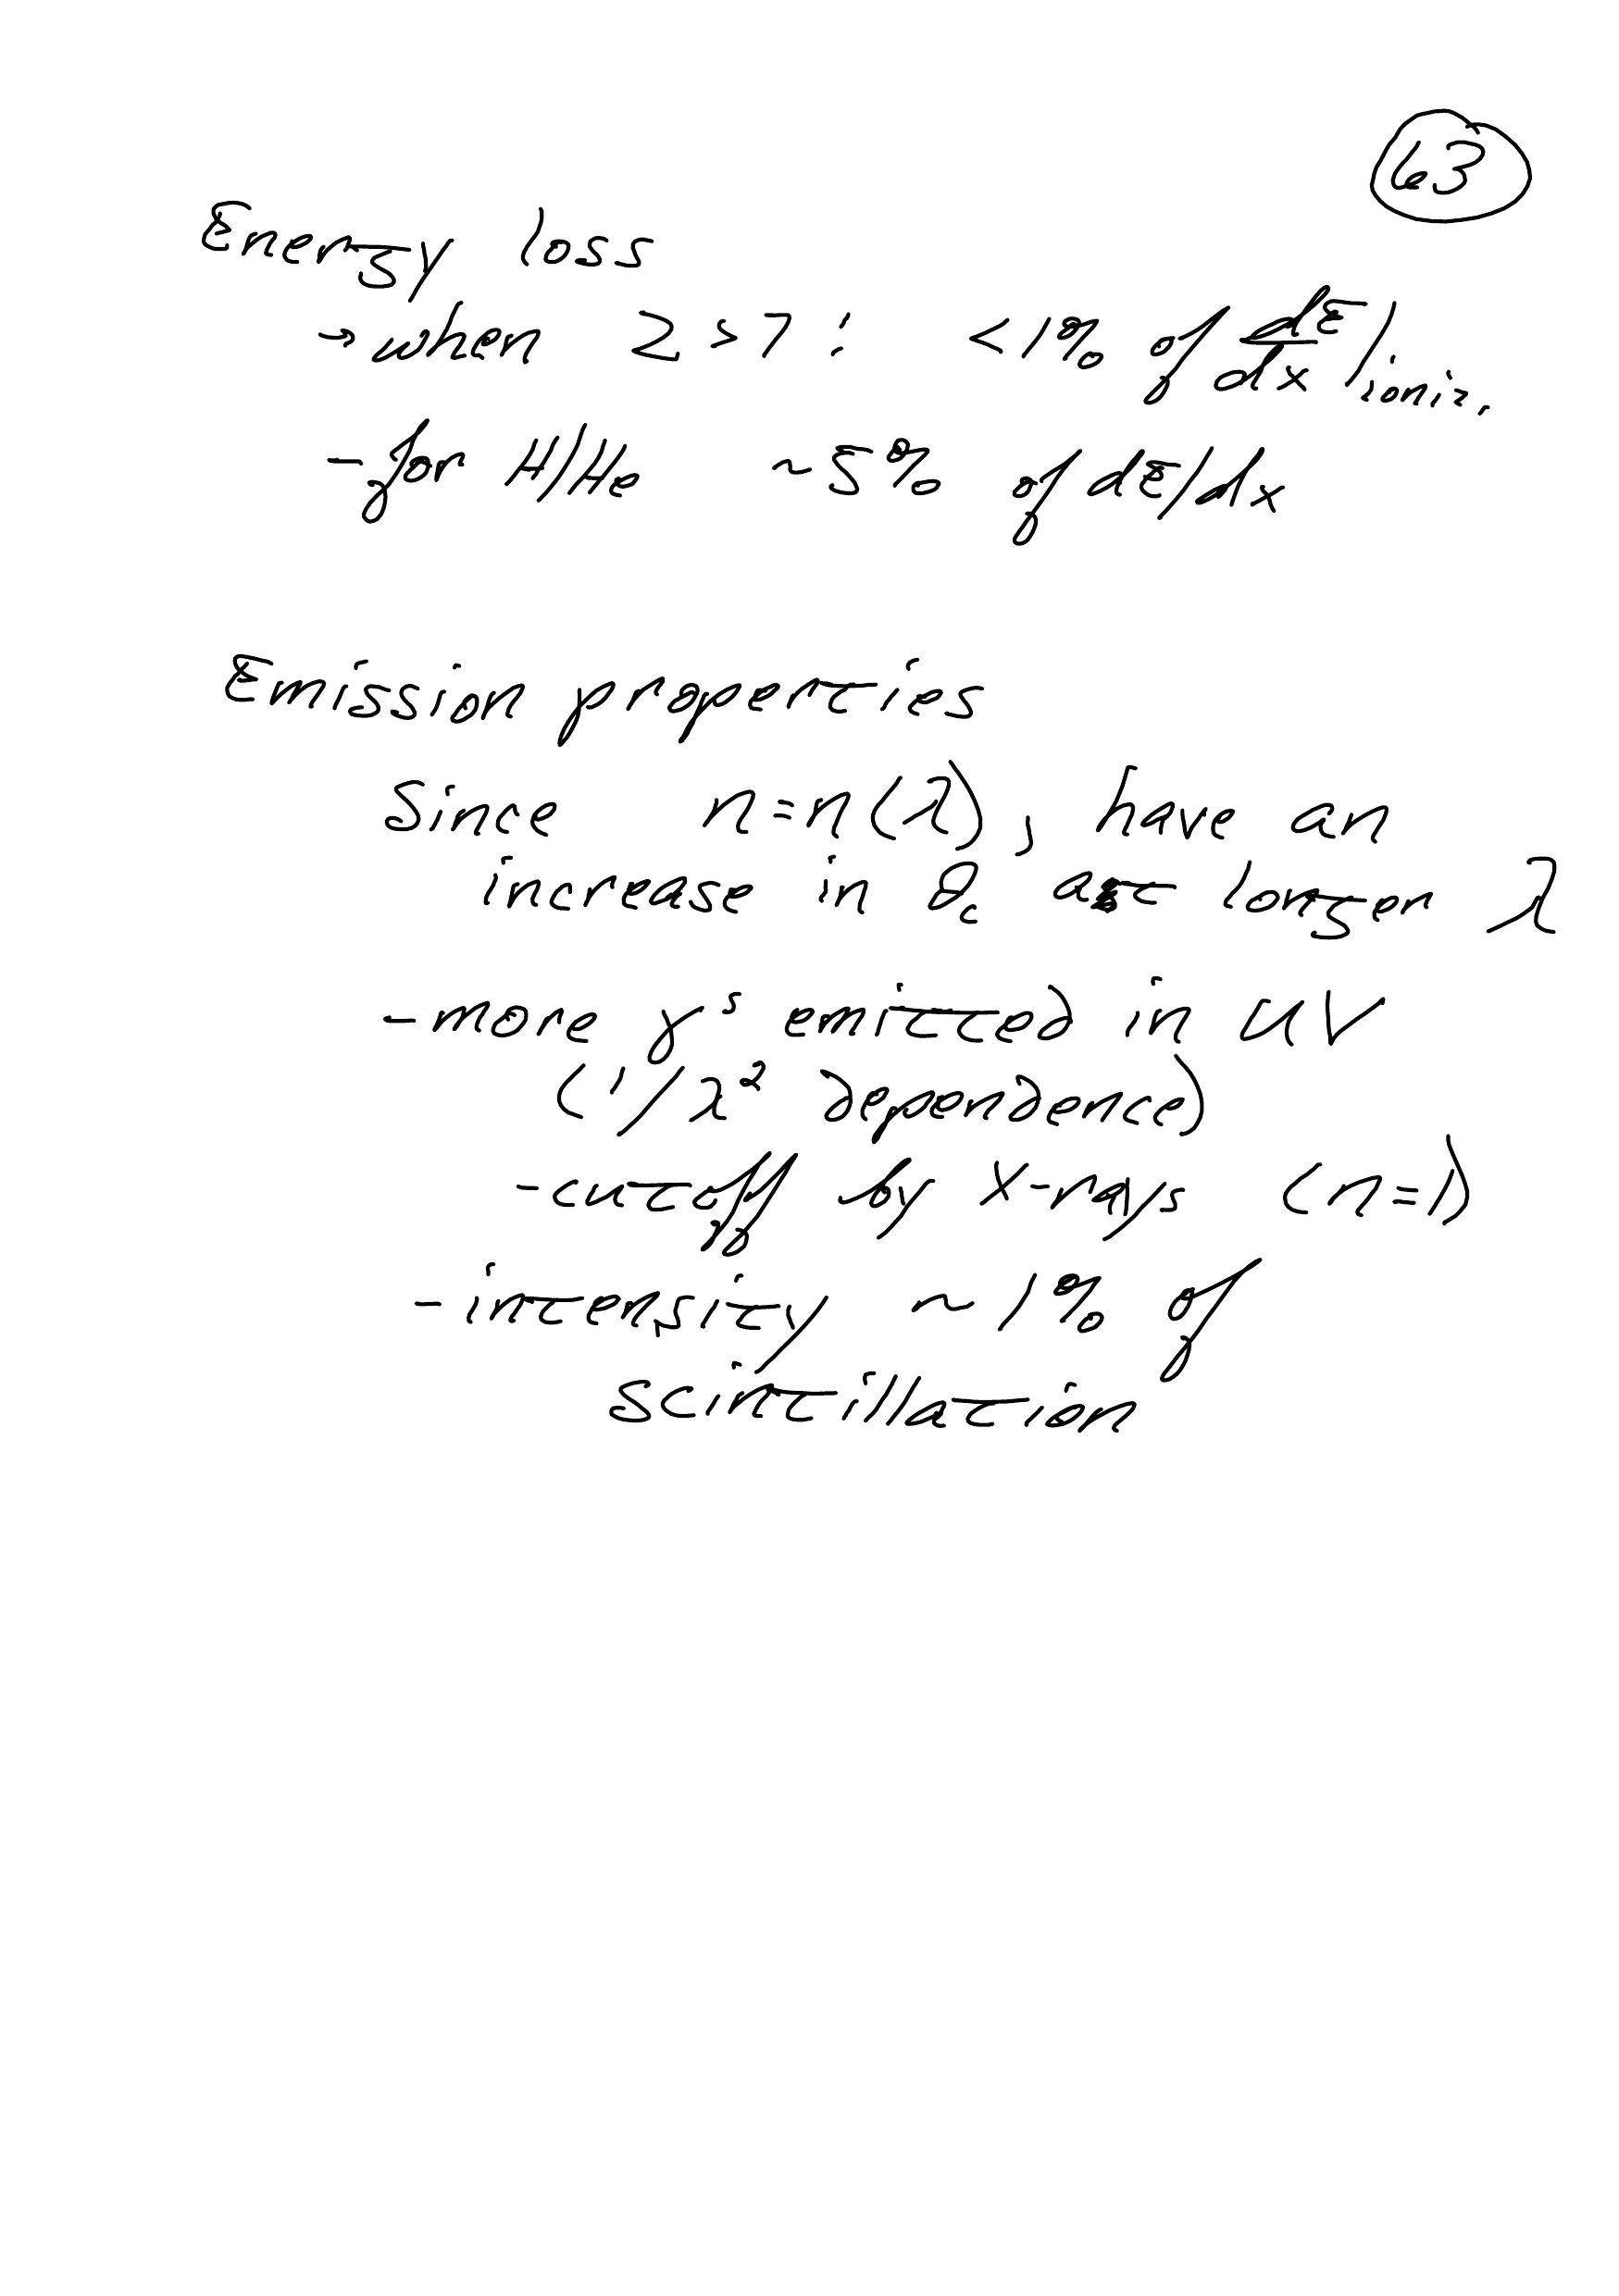 63
Energy loss
→ when Z > 7 : < 1% of dE/dx |ioniz.
- for H/He ~5% of dE/dx
Emission properties
Since n = n(λ), have an
increase in θc at longer λ
- more γ's emitted in UV
(1/λ² dependence)
- cutoff by X-rays (n=1)
- intensity ~ 1% of
scintillation